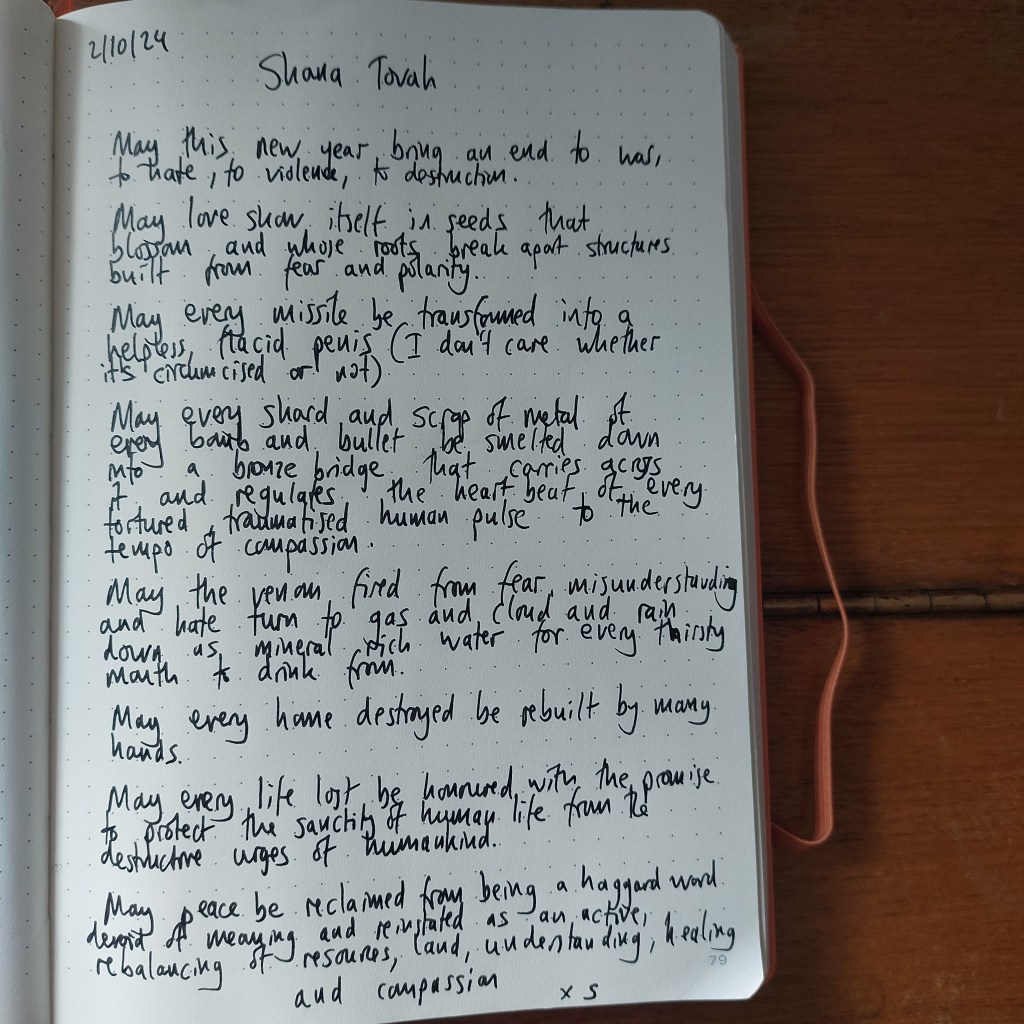 2/10/24
Shana Tovah
May this new year bring an end to war,
to hate, to violence, to destruction.
May love show itself in seeds that
blossom and whose roots break apart structures
built from fear and polarity.
May every missile be transformed into a
helpless, flacid penis (I don't care whether
it's circumcised or not)
May every shard and scrap of metal of
every bomb and bullet be smelted down
into a bronze bridge that carries across
it and regulates the heart beat of every
tortured, traumatised human pulse to the
tempo of compassion.
May the venom fired from fear, misunderstanding
and hate turn to gas and cloud and rain
down as mineral rich water for every thirsty
mouth to drink from.
May every home destroyed be rebuilt by many
hands.
May every life lost be honoured with the promise
to protect the sanctity of human life from the
destructive urges of humankind.
May peace be reclaimed from being a haggard word
devoid of meaning and reinstated as an active,
rebalancing of resources, land, understanding, healing
and compassion
x S
79